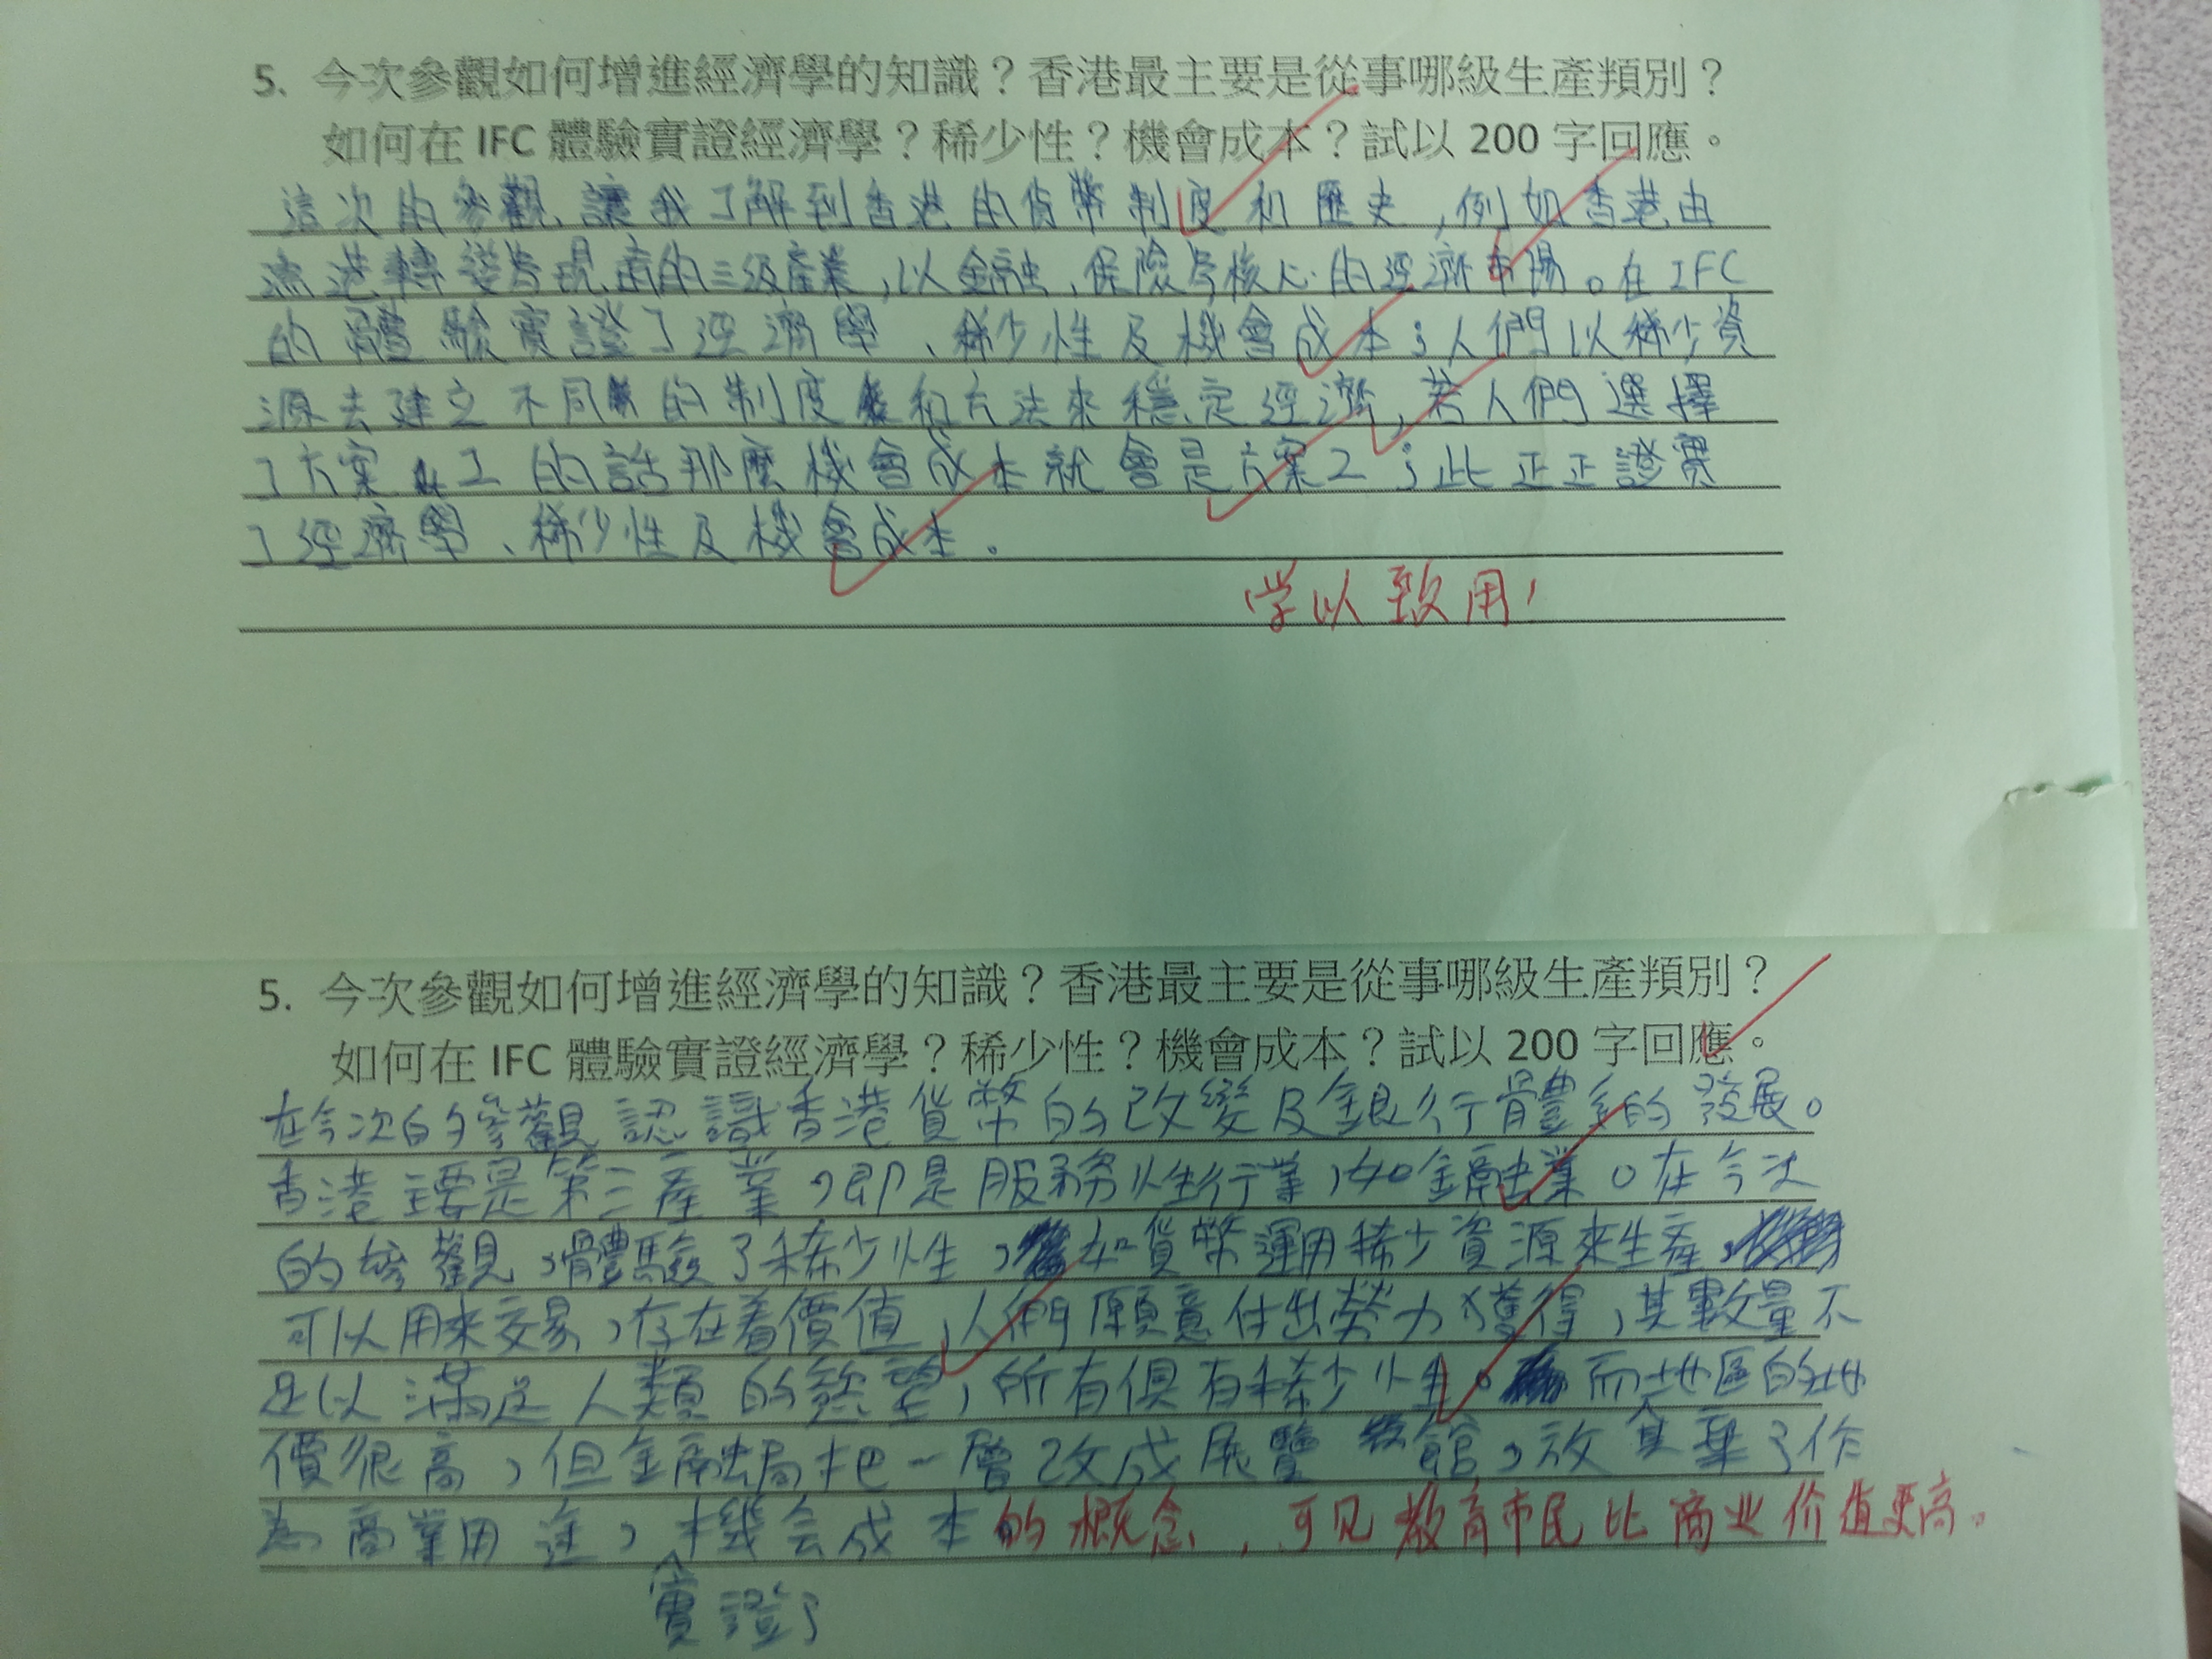 5. 今次參觀如何增進經濟學的知識？香港最主要是從事哪級生產類別？
如何在 IFC 體驗實證經濟學？稀少性？機會成本？試以 200 字回應。
這次的參觀,讓我了解到香港的貨幣制度和歷史,例如香港由
漁港轉變為現時的三級產業,以金融,保險為核心的經濟市場。在IFC
的體驗實證了經濟學、稀少性及機會成本；人們以稀少資
源去建立不同的制度和方法來穩定經濟,若人們選擇
了方案1的話那麼機會成本就會是方案2；此正正證實
了經濟學、稀少性及機會成本。
学以致用!
5. 今次參觀如何增進經濟學的知識？香港最主要是從事哪級生產類別？
如何在 IFC 體驗實證經濟學？稀少性？機會成本？試以 200 字回應。
在今次的參觀認識香港貨幣的改變及銀行體系的發展。
香港主要是第三產業,即是服務性行業,如金融業。在今次
的參觀,體驗了稀少性,如貨幣運用稀少資源來生產,
可以用來交易,存在着價值,人們願意付出勞力獲得,其數量不
足以滿足人類的慾望,所有俱有稀少性。而地區的地
價很高,但金融局把一層改成展覽館,放棄了作
為商業用途,機會成本的概念,可见教育市民比商业价值更高。
實證了